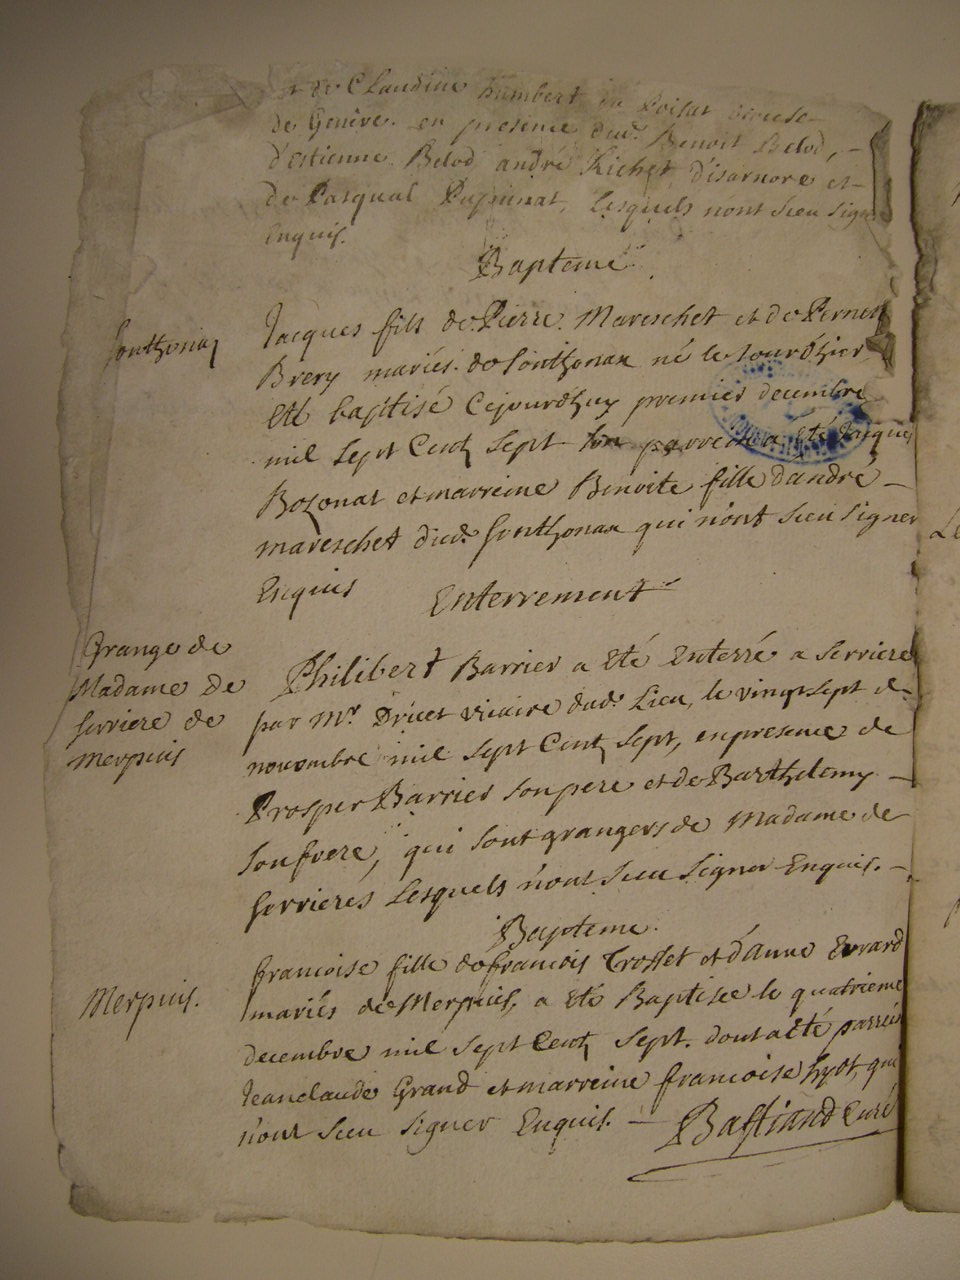 et de Claudine humbert
de Genève. en presence dud. Benoit Belod,
d'estienne Belod andré Richet d'isarnore et
de Pasqual Lesquels n'ont sceu signe
Enquis.
Bapteme
Sonthonax
Jacques fils de Pierre Mareschet et de Pernet
Brery mariés de Sonthonax né le jour d'hier
Eté baptisé Cejourdhuy premier decembre
mil sept Cent sept son parrein a Eté Jacques
Bozonat et marreine Benoite fille d'andré
mareschet dud. Sonthonax qui n'ont sceu signer
Enquis
Enterrement
Grange de
Madame de
Serriere de
Merpuis
Philibert Barrier a Eté Enterré a Serriere
par Mr. Druet vicaire dud. Lieu, le vingt sept de
novembre mil sept Cent sept, en presence de
Prosper Barrier son pere et de Barthelemy
son frere, qui sont grangers de Madame de
Serrieres Lesquels n'ont sceu signer Enquis.
Bapteme.
Merpuis.
francoise fille de francois Trosset et d'Anne Evrard
mariés de Merpuis, a Eté Baptisée le quatrieme
decembre mil sept Cent sept. dont a eté parrein
Jeanclaude Grand et marreine francoise hyot, qui
n'ont sceu signer Enquis.
Bastiand Curé